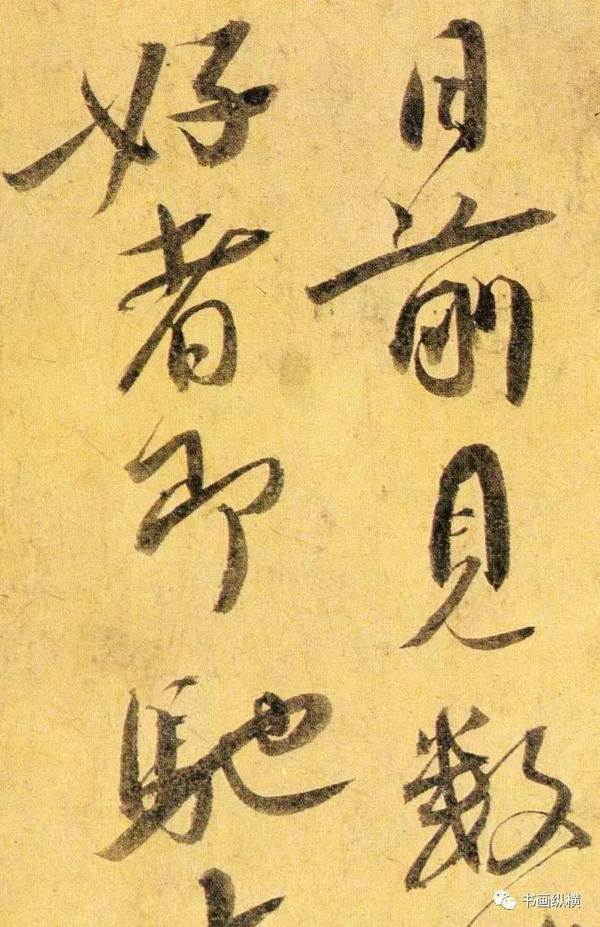 目前見数
好者即馳
书画纵横